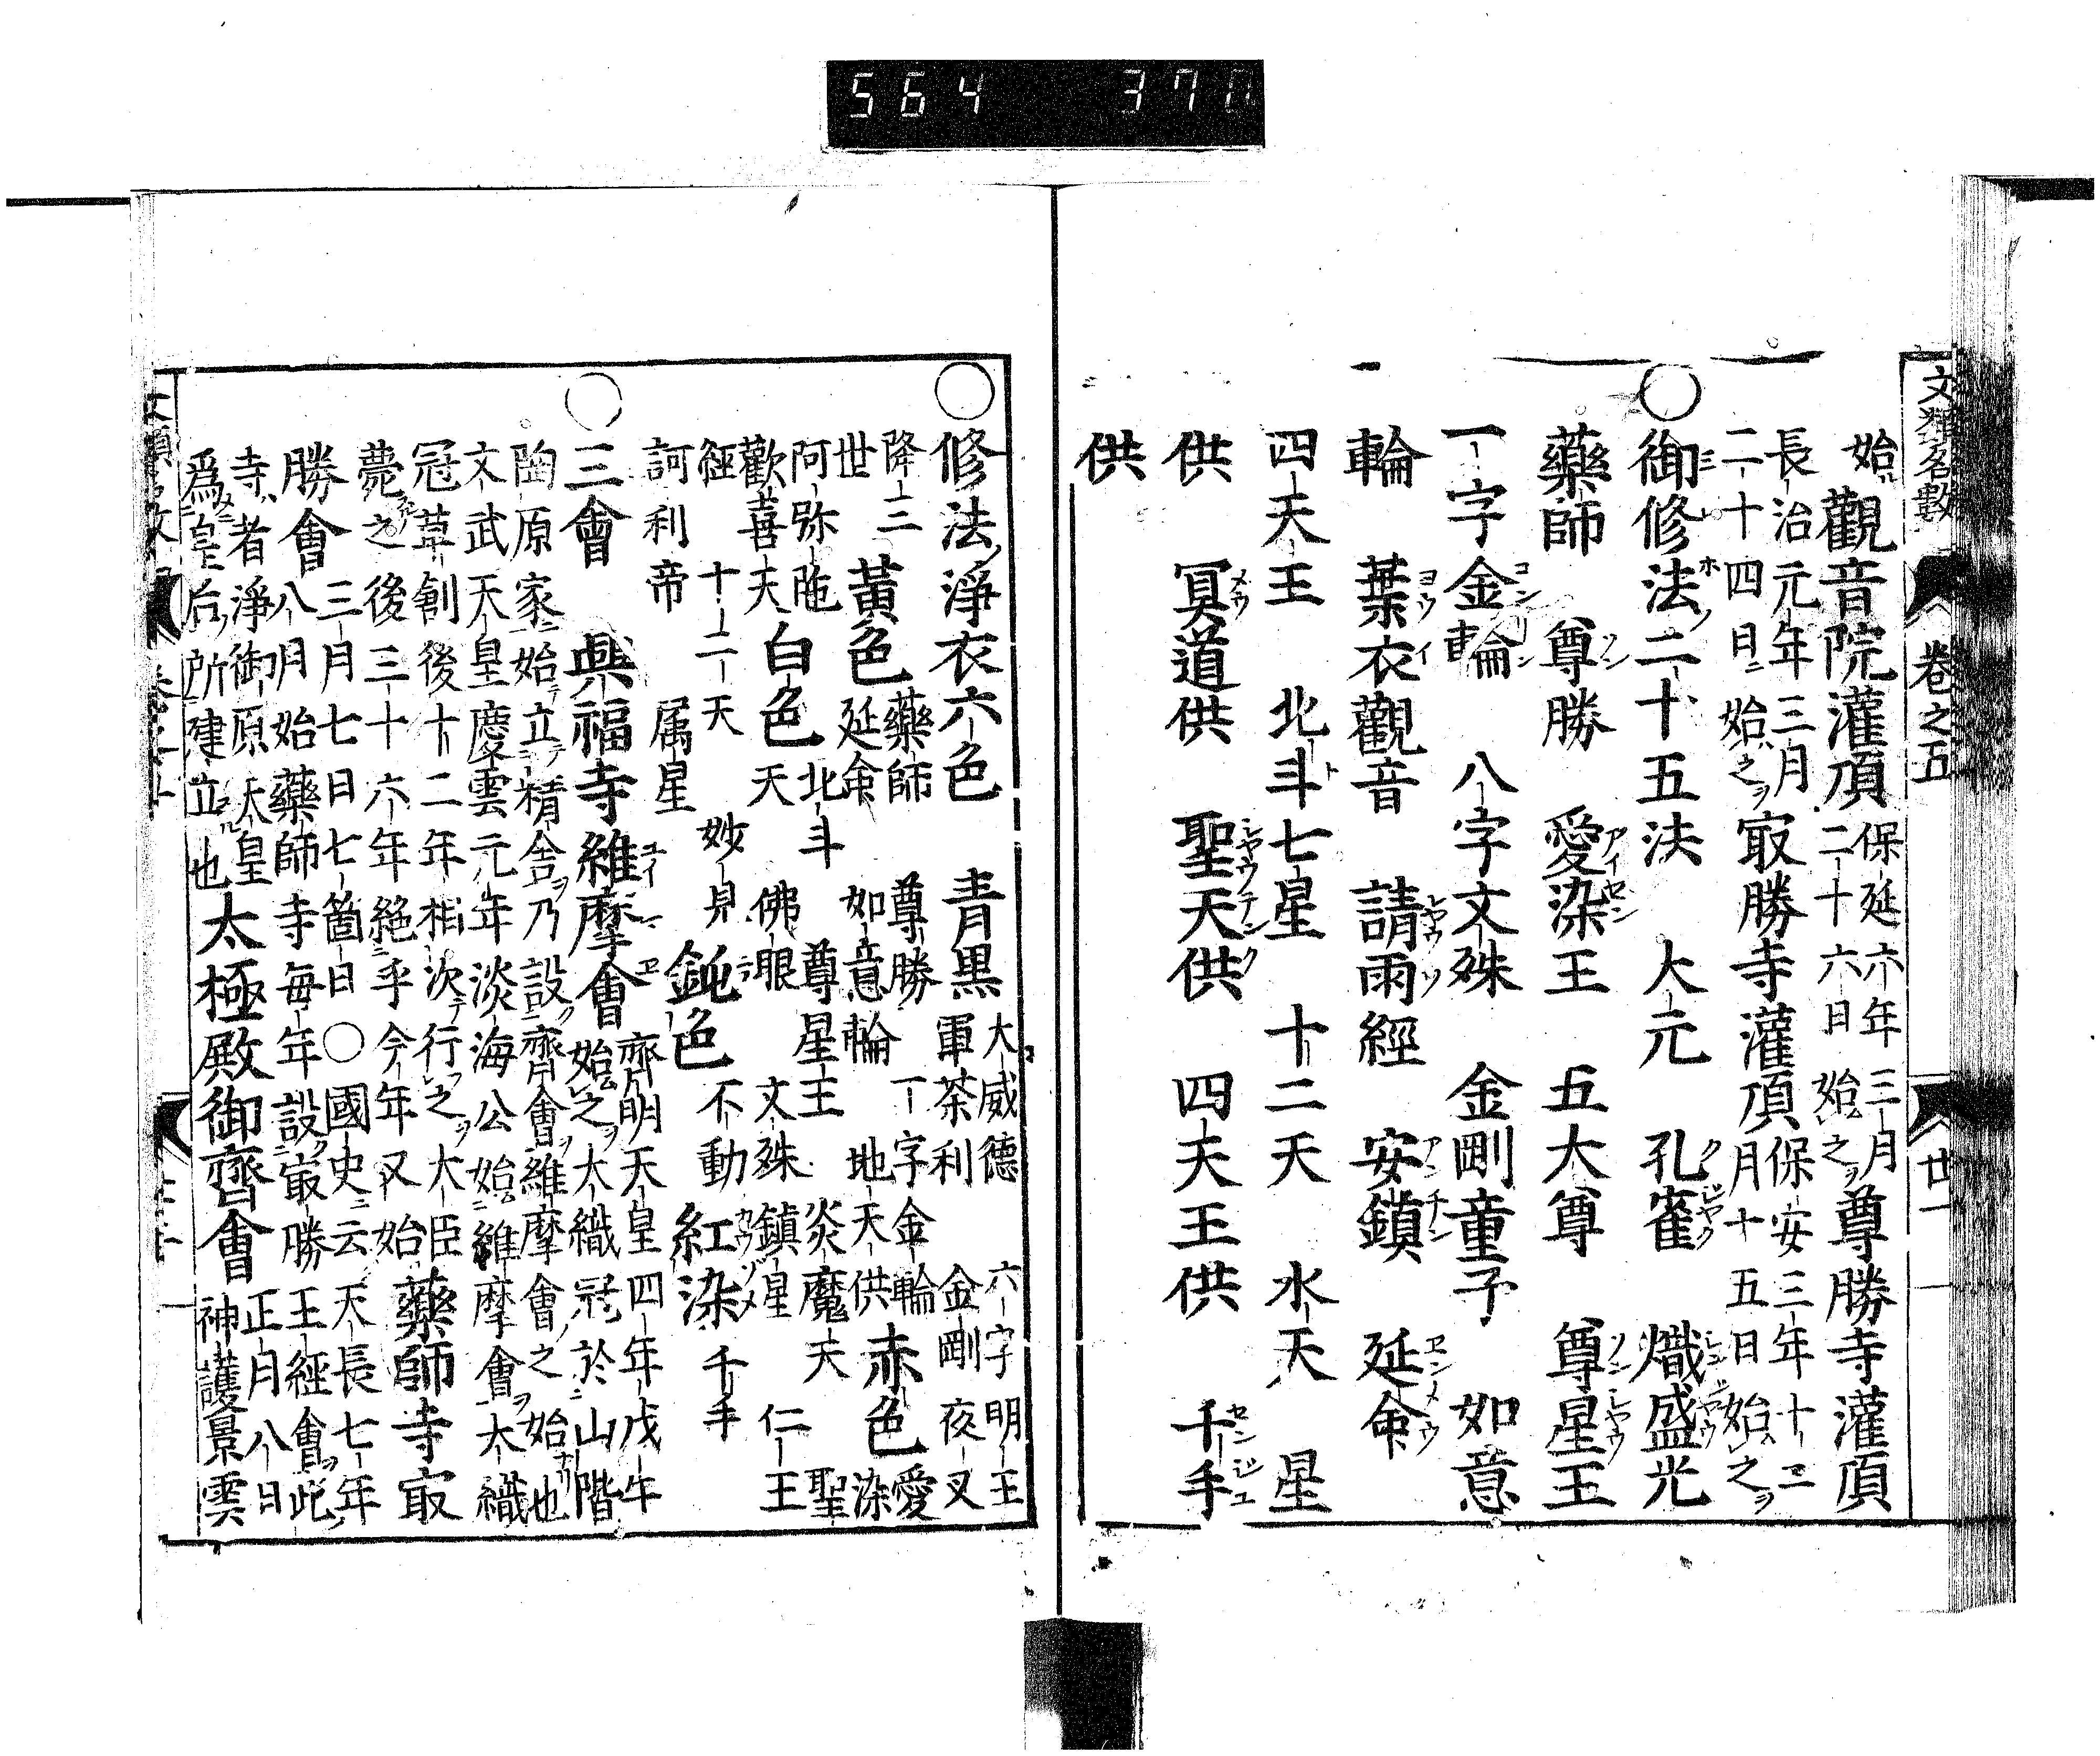 564 370
文類名數 卷之五 廿一
始 觀音院灌頂 保延六年三月二十六日始之 尊勝寺灌頂
長治元年三月二十四日始之 㝡勝寺灌頂 保安三年十二月十五日始之
○御修法二十五法 大元 孔雀 熾盛光
藥師 尊勝 愛染王 五大尊 尊星王
一字金輪 八字文殊 金剛童子 如意
輪 葉衣觀音 請雨經 安鎭 延命
四天王 北斗七星 十二天 水天 星
供 冥道供 聖天供 四天王供 千手
供
○修法淨衣六色 青黒 大威德 六字明王 軍荼利 金剛夜叉
降三世 黃色 藥師 尊勝 一字金輪 延命 如意輪 地天供 赤色 愛染
阿弥陁 北斗 尊星王 炎魔天 聖
歡喜天 白色 天 佛眼 文殊 鎭星 仁王
經 十二天 妙見 鈍色 不動 紅染 千手
訶利帝 属星
○三會 興福寺維摩會 齊明天皇四年戊午始之大織冠於山階
陶原家始立精舎乃設齊會維摩會之始也
文武天皇慶雲元年淡海公始維摩會大織
冠草創後十二年相次行之大臣
薨之後三十六年絶乎今年又始 藥師寺㝡
勝會 三月七日七箇日○國史云天長七年
八月始藥師寺毎年設㝡勝王經會此
寺者淨御原天皇
爲皇后所建立也 太極殿御齊會 正月八日神護景雲